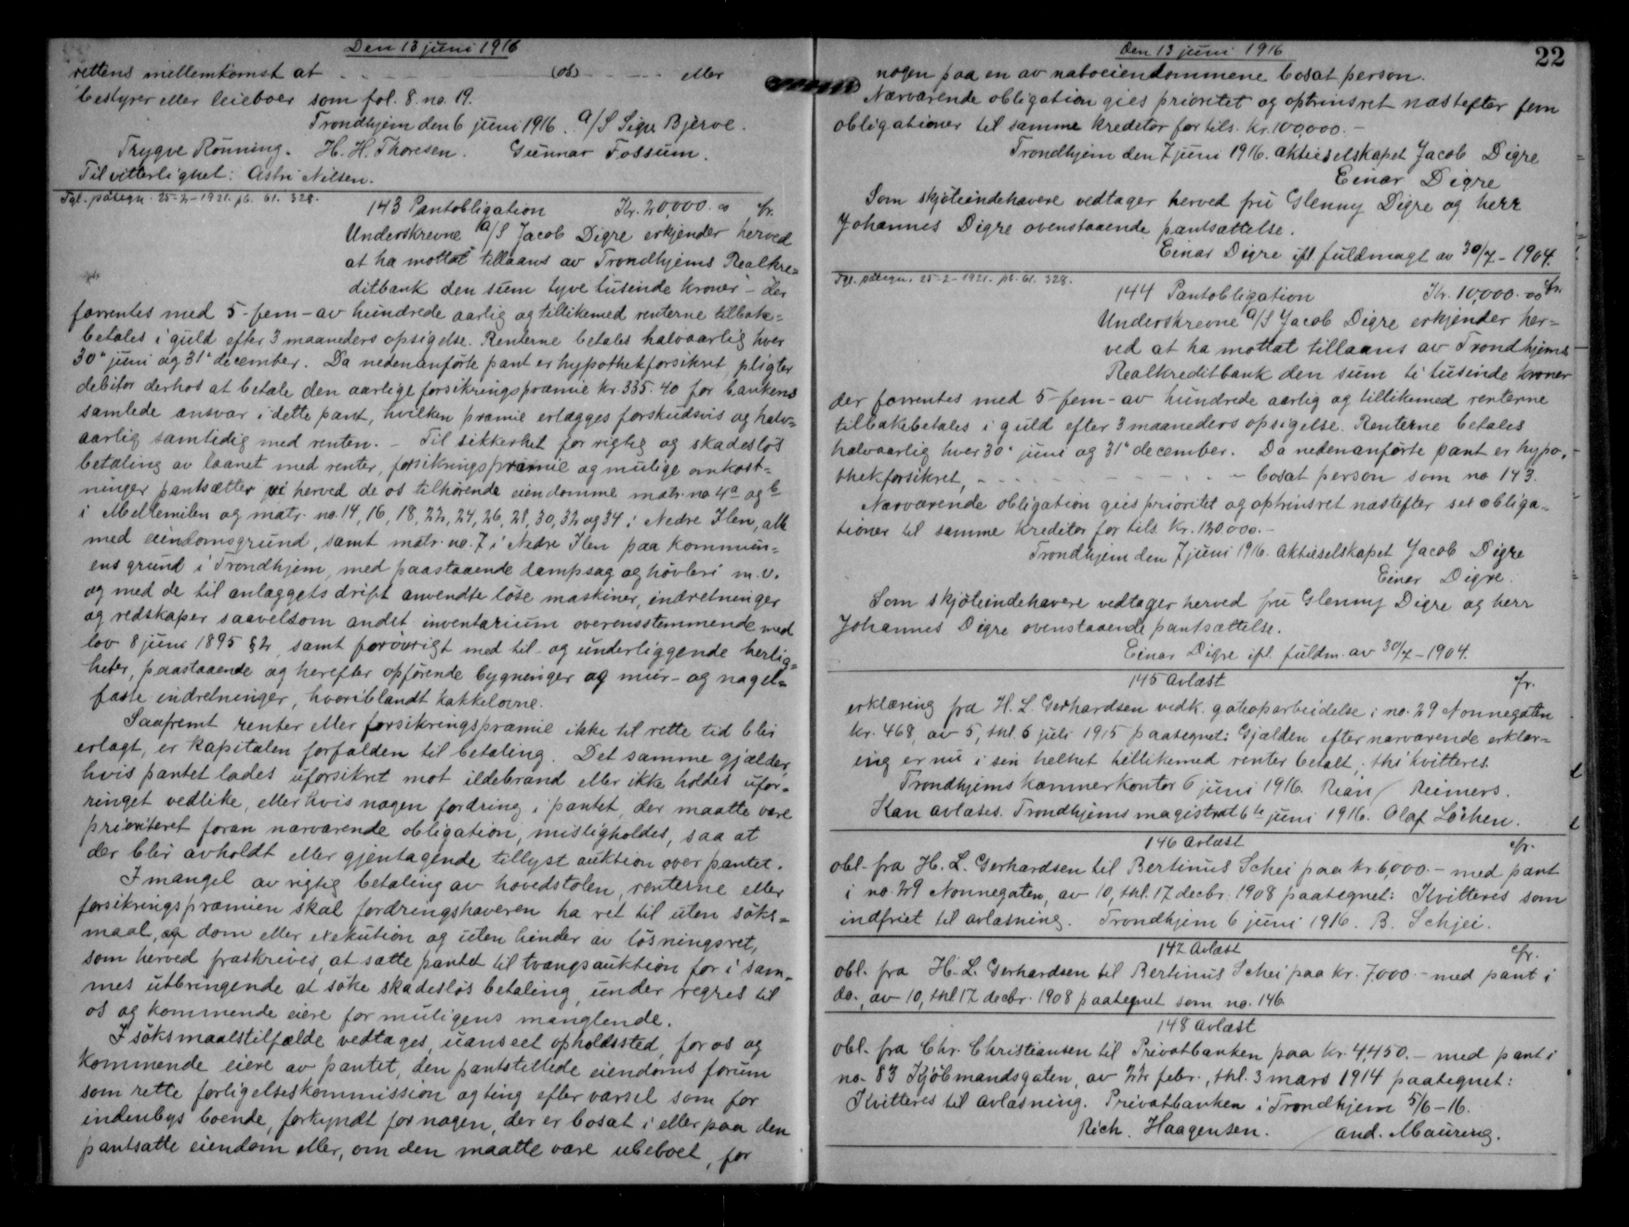 Den 13 juni 1916
rettens mellemkomst at - - - - - - (os) - - - - eller
bestyrer eller leieboer som fol. 8 no. 19.
Trondhjem den 6 juni 1916. A/S Sigu Bjerve.
Trygve Rönning. H. H. Thoresen. Gunnar Fossum.
Til vitterlighet: Astri Nilsen.
Tgl. påtegn. 25-2-1921. pb. 61. 328.
143 Pantobligation Kr. 20,000.00 cfr.
Underskrevne A/S Jacob Digre erkjender herved
at ha mottat tillaans av Trondhjems Realkre=
ditbank den sum tyve tusinde kroner - der
forrentes med 5 - fem - av hundrede aarlig og tillikemed renterne tilbake=
betales i guld efter 3 maaneders opsigelse. Renterne betales halvaarlig hver
30' juni og 31' december. Da nedenanförte pant er hypothekforsikret pligter
debitor derhos at betale den aarlige forsikringspræmie kr. 335.40 for bankens
samlede ansvar i dette pant, hvilken præmie erlægges forskudsvis og halv=
aarlig samtidig med renten. - Til sikkerhet for rigtig og skadeslös
betaling av laanet med renter, forsikringspræmie og mulige omkost=
ninger pantsætter vi herved de os tilhörende eiendomme matr. no 4a og b
i Mellemilen og matr. no. 14, 16, 18, 22, 24, 26, 28, 30, 32 og 34 i Nedre Ilen, alt
med eiendomsgrund, samt matr. no. 7 i Nedre Ilen paa kommun=
ens grund i Trondhjem, med paastaaende dampsag og hövleri m.v.
og med de til anlæggets drift anvendte löse maskiner, indretninger
og redskaper saavelsom andet inventarium overensstemmende med
lov 8 juni 1895 § 2, samt forövrigt med til- og underliggende herlig=
heter, paastaaende og herefter opförende bygninger og mur- og nagel=
faste indretninger, hvoriblandt kakkelovne.
Saafremt renter eller forsikringspræmie ikke til rette tid blir
erlagt, er kapitalen forfalden til betaling. Det samme gjælder,
hvis pantet lades uforsikret mot ildebrand eller ikke holdes ufor=
ringet vedlike, eller hvis nogen fordring i pantet, der maatte være
prioriteret foran nærværende obligation, misligholdes, saa at
der blir avholdt eller gjentagende tillyst auktion over pantet.
I mangel av rigtig betaling av hovedstolen, renterne eller
forsikringspræmien skal fordringshaveren ha ret til uten söks=
maal, dom eller exekution og uten hinder av lösningsret,
som herved fraskrives, at sætte pantet til tvangsauktion for i sam=
mes utbringende at söke skadeslös betaling, under regres til
os og kommende eiere for muligens manglende.
I söksmaalstilfælde vedtages, uanseet opholdssted, for os og
kommende eiere av pantet, den pantstillede eiendoms forum
som rette forligelseskommission og ting efter varsel som for
indenbys boende, forkyndt for nogen, der er bosat i eller paa den
pantsatte eiendom eller, om den maatte være ubeboet, for
Den 13 juni 1916
22
nogen paa en av naboeiendommene bosat person.
Nærværende obligation gies prioritet og optrinsret næstefter fem
obligationer til samme kreditor for tils. kr. 100,000.-
Trondhjem den 7 juni 1916. Aktieselskapet Jacob Digre
Einar Digre
Som skjöteindehavere vedtager herved fru Glenny Digre og herr
Johannes Digre ovenstaaende pantsættelse.
Einar Digre ifl. fuldmagt av 30/7 - 1904.
Tgl. påtegn. 25-2-1921. pb. 61. 328.
144 Pantobligation Kr. 10000.00 cfr.
Underskrevne A/S Jacob Digre erkjender her=
ved at ha mottat tillaans av Trondhjems
Realkreditbank den sum ti tusinde kroner
der forrentes med 5 - fem - av hundrede aarlig og tillikemed renterne
tilbakebetales i guld efter 3 maaneders opsigelse. Renterne betales
halvaarlig hver 30' juni og 31' december. Da nedenanförte pant er hypo=
thekforsikret, - - - - - - - - - bosat person som no 143.
Nærværende obligation gies prioritet og optrinsret næstefter sex obliga=
tioner til samme kreditor for tils. kr. 120000.-
Trondhjem den 7 juni 1916. Aktieselskapet Jacob Digre
Einar Digre.
Som skjöteindehavere vedtager herved fru Glenny Digre og herr
Johannes Digre ovenstaaende pantsættelse.
Einar Digre ifl. fuldm. av 30/7 - 1904.
145 Avlæst cfr.
erklæring fra H. L. Gerhardsen vedk. gateoparbeidelse i no. 29 Nonnegaten
kr. 468, av 5, thl. 6 juli 1915 paategnet: Gjælden efter nærværende erklær=
ing er nu i sin helhet tillikemed renter betalt, thi kvitteres.
Trondhjems kæmnerkontor 6 juni 1916. Rian / Reimers.
Kan avlæses. Trondhjems magistrat 6te juni 1916. Olaf Löchen.
146 Avlæst cfr.
obl. fra H. L. Gerhardsen til Bertinus Schei paa kr. 6,000.- med pant
i no. 29 Nonnegaten, av 10, thl. 17 decbr. 1908 paategnet: Kvitteres som
indfriet til avlæsning. Trondhjem 6 juni 1916. B. Schjei.
147 Avlæst cfr.
obl. fra H. L. Gerhardsen til Bertinus Schei paa kr. 7,000.- med pant i
do., av 10, thl 17 decbr. 1908 paategnet som no. 146.
148 Avlæst
obl. fra Chr. Christiansen til Privatbanken paa kr. 4,450.- med pant i
no. 83 Kjöbmandsgaten, av 22 febr., thl. 3 mars 1914 paategnet:
Kvitteres til avlæsning. Privatbanken i Trondhjem 5/6 - 16.
Rich. Haagensen. / And. Mauring.